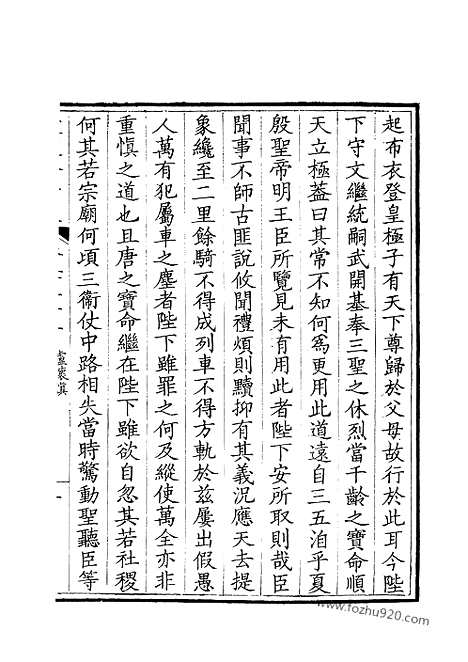 起布衣登皇極子有天下尊歸於父母故行於此耳今陛
下守文繼統嗣武開基奉三聖之休烈當千齡之寶命順
天立極蓋曰其常不知何為更用此道遠自三五洎乎夏
殷聖帝明王臣所覽見未有用此者陛下安所取則哉臣
聞事不師古匪說攸聞禮煩則黷抑有其義況應天去提
象纔至二里餘騎不得成列車不得方軌於兹屢出假愚
人萬有犯屬車之塵者陛下雖罪之何及縱使萬全亦非
重慎之道也且唐之寶命繼在陛下雖欲自忽其若社稷
何其若宗廟何頃三衛仗中路相失當時驚動聖聽臣等
www.fozhu920.com